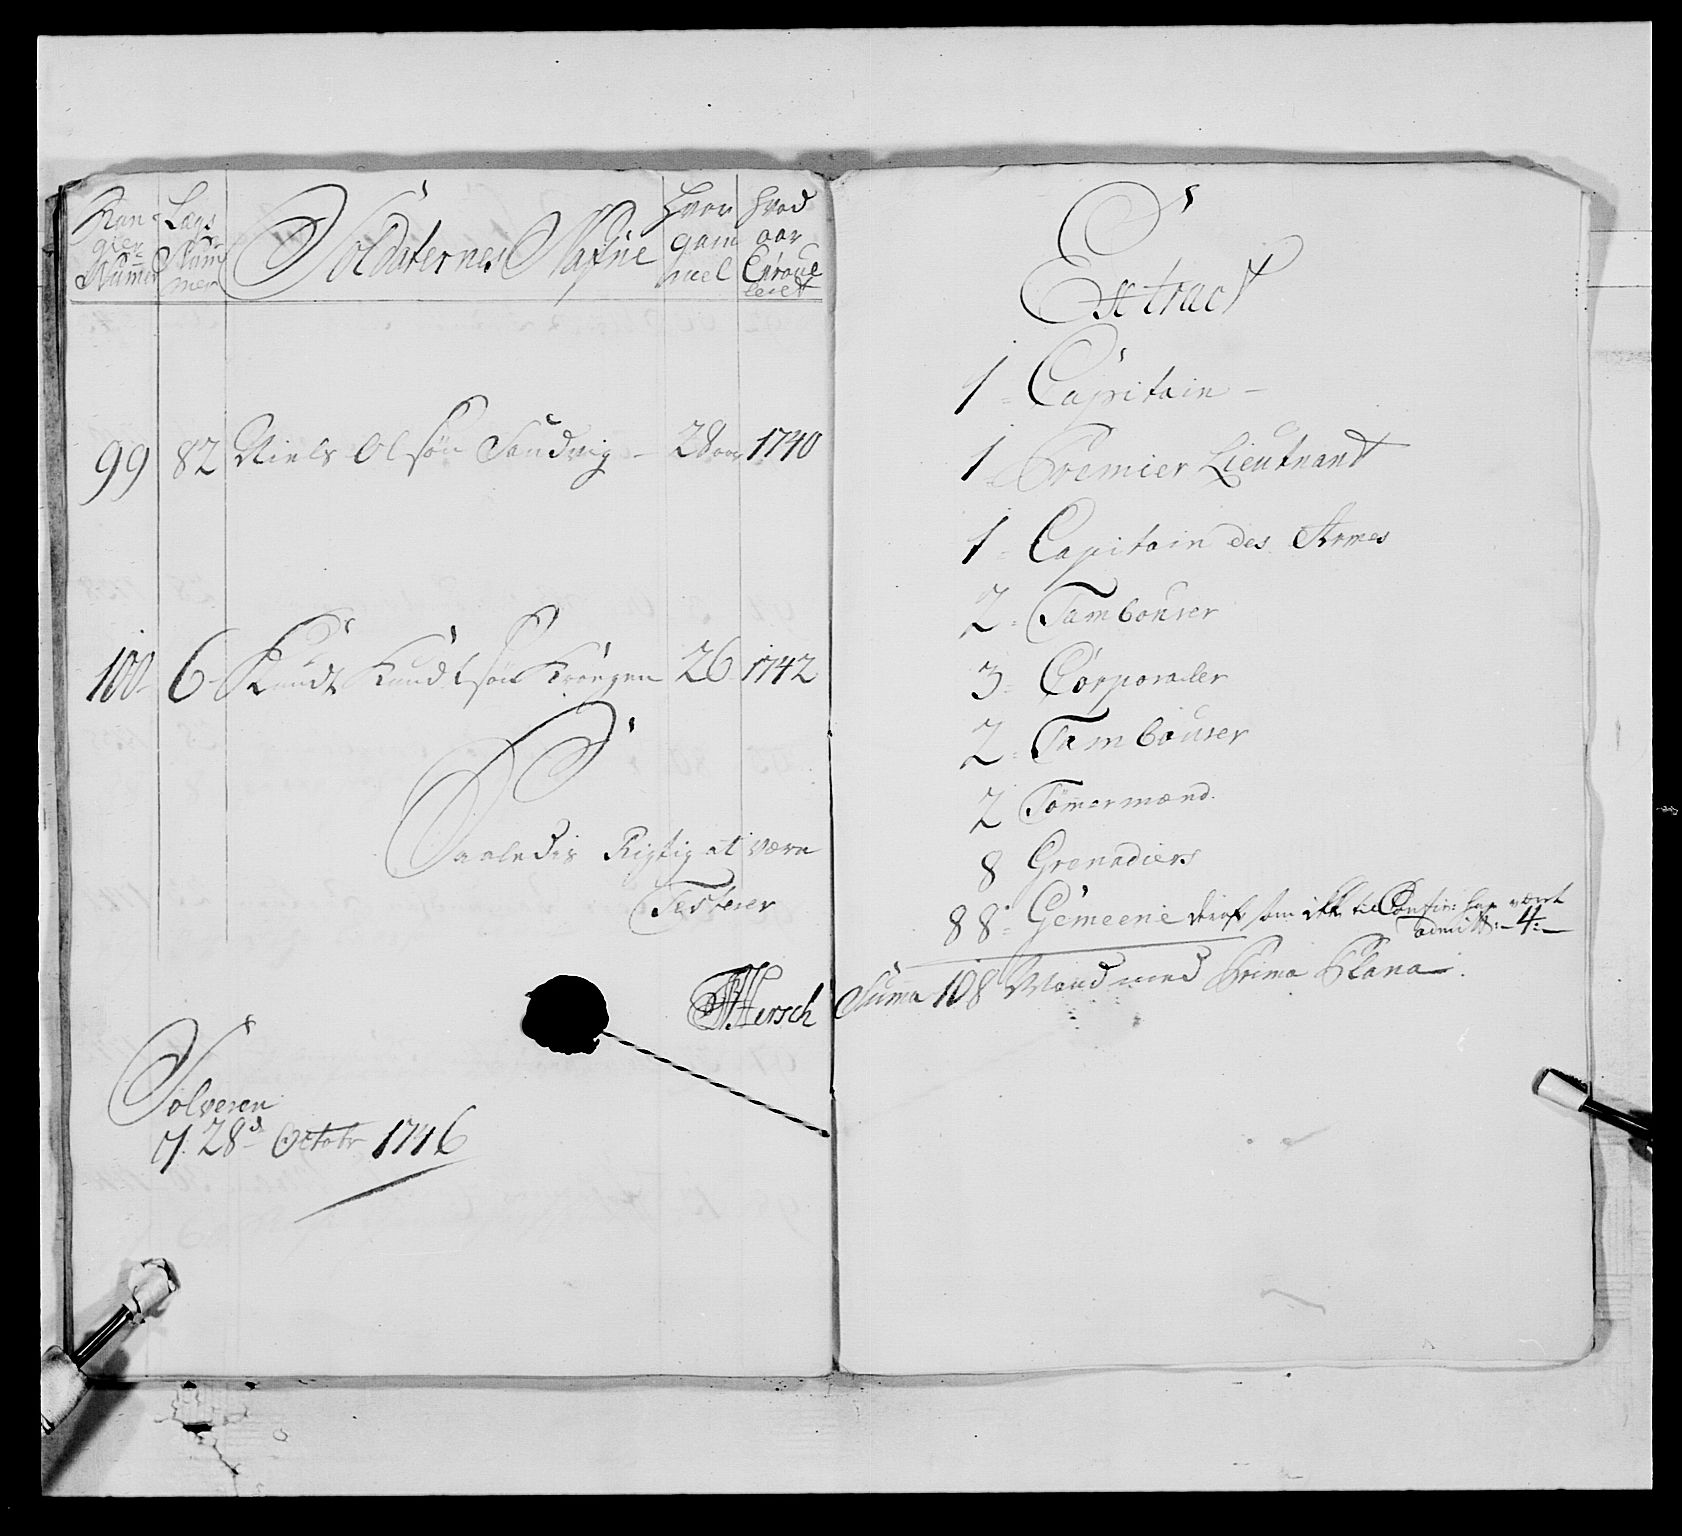 Ran=
gier
Numer
Lægs
Num
mer
Soldaternes Nafne
Hvor
gam
mel
Hvad
aar
Enroul
leret
99 82 Niels Olsøn Sandvig - 28 aar 1740
100 6 Knudt Knudtsøn Krøngen 26 1742
Saaledis Rigtig at være
Testerer
Hersch
Solveren
d. 28d Octobr 1746
Extract
1 = Capitain -
1 Premier Lieutnant
1 = Capitain des Armes
2 = Tambourer
3 = Corporaler
2 = Tambourer
2 Tømermænd
8 Grenadiers
88 = Gemeene deraf som ikke til Confir: har vært
admitt: - 4: -
Suma 108 Mand med Prima Plana